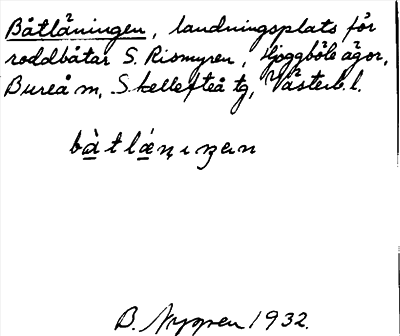 Båtläningen, landningsplats för
roddbåtar S. Rismyren, Hjoggböle ägor,
Bureå sn, Skellefteå tg, Västerb.l.
bå̀tlä́nıŋen
B. Nygren 1932.